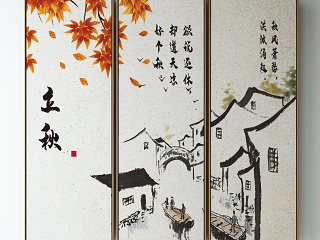 立秋
欲说还休
却道天凉
好个秋
秋风萧瑟
洪波涌起